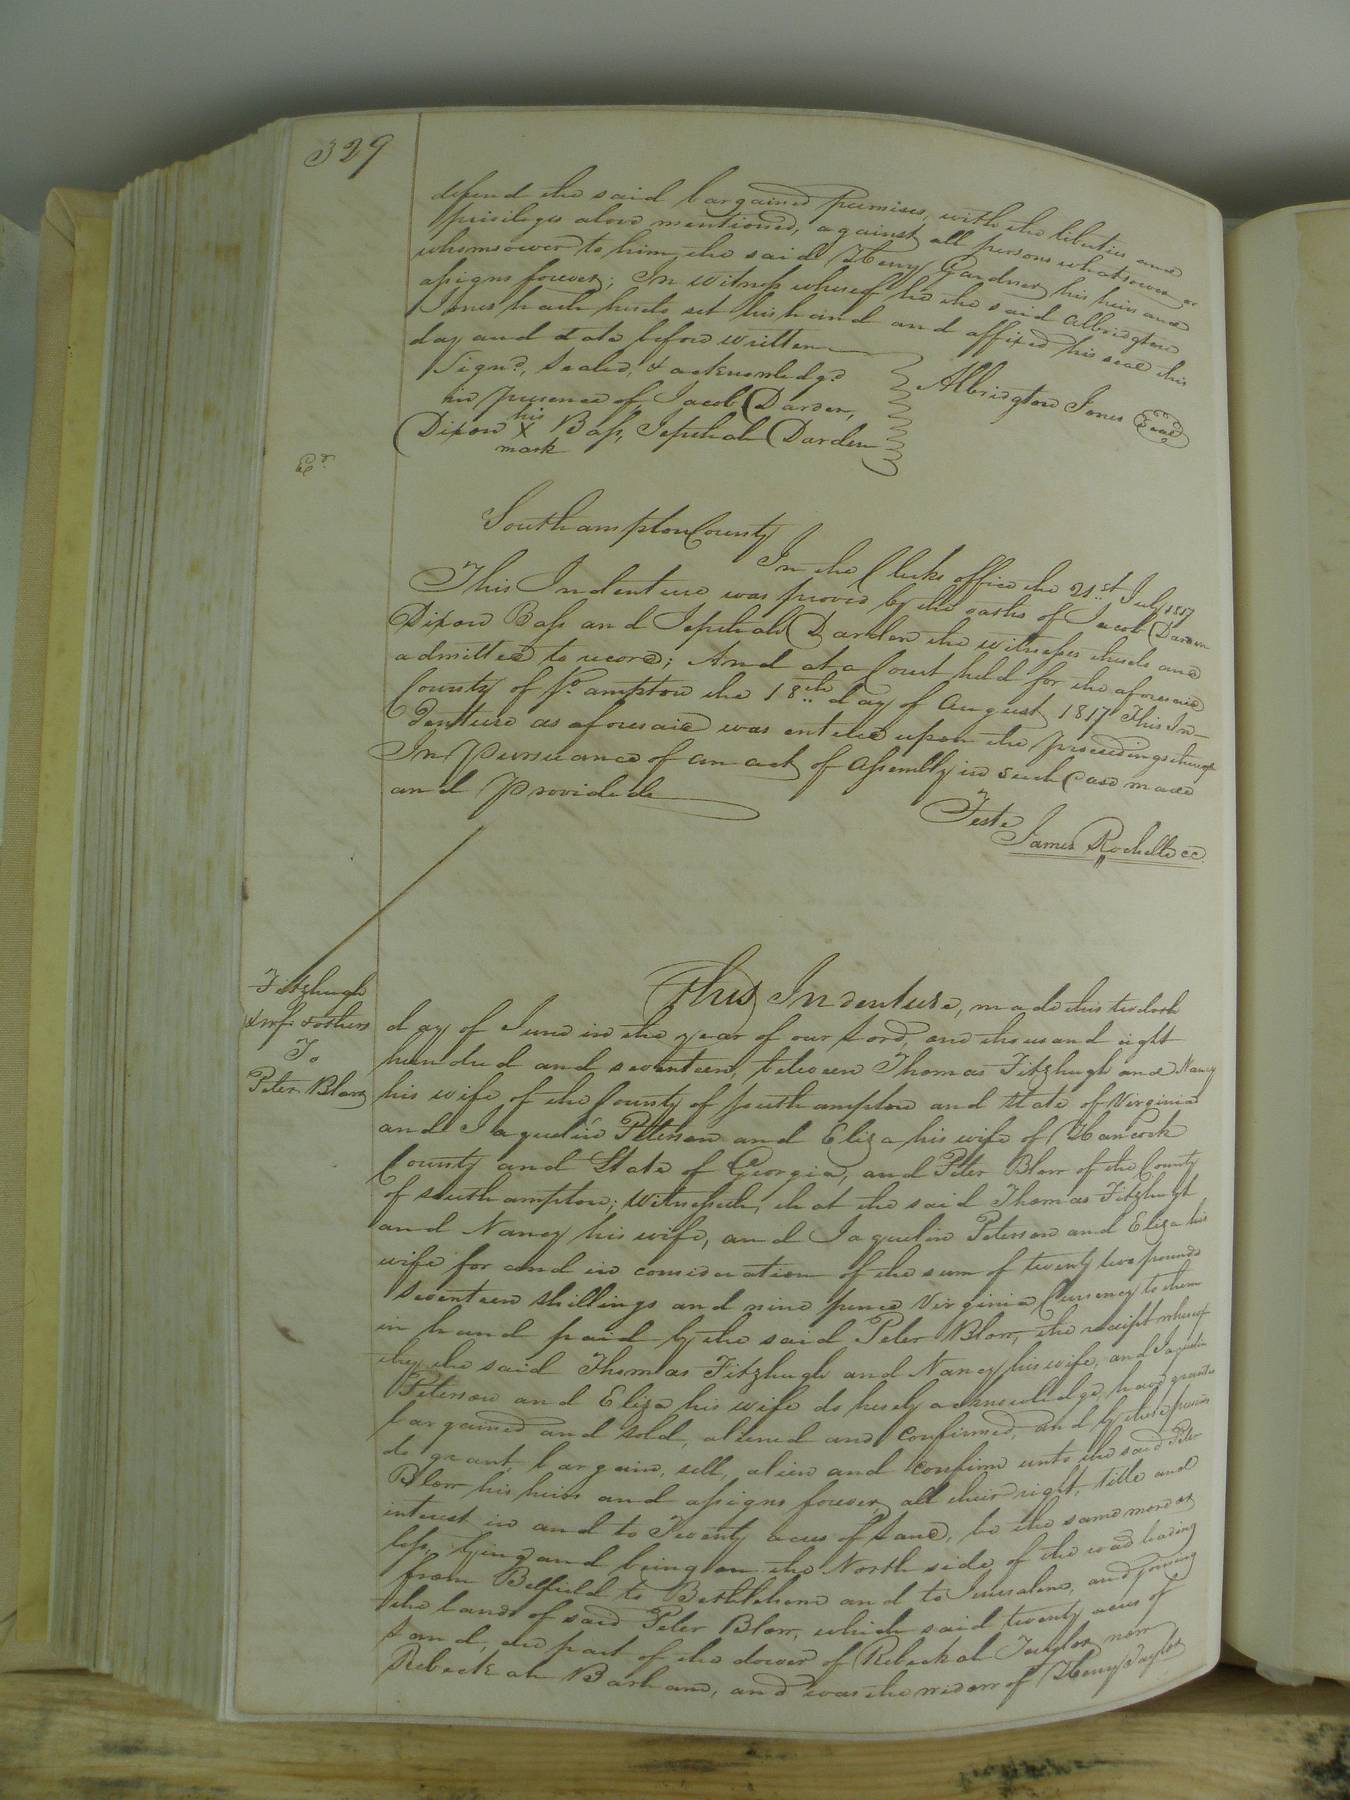 329
defend the said bargained premises, with the liberties and
privileges above mentioned, against all persons whatsoever or
whomsoever to him the said Henry Gardner his heirs and
assigns forever; In witness whereof he the said Albridgton
Jones hath hereto set his hand and affixed his seal this
day and date before written
Sign.d, Sealed, & acknowledg.d
in presence of Jacob Darden,
Dixon his X mark Bass, Jephthah Darden
Albridgton Jones Seal
Southampton County
In the Clerks office the 21.st July 1817
This Indenture was proved by the oaths of Jacob Darden
Dixon Bass and Jephthah Darden the witnesses thereto and
admitted to record; And at a Court held for the aforesaid
County of So.ampton the 18.th day of August 1817 This In-
denture as aforesaid was entered upon the proceedings thereof
In Pursuance of an act of Assembly in such Case made
and Provided
Teste
James Rochelle cc.
Fitzhugh
& wf. & others
To
Peter Blow
This Indenture, made this
day of June in the year of our Lord, one thousand eight
hundred and seventeen, between Thomas Fitzhugh and Nancy
his wife of the County of Southampton and State of Virginia
and Jaquelin Peterson and Eliza his wife of Hancock
County and State of Georgia, and Peter Blow of the County
of Southampton; Witnesseth, that the said Thomas Fitzhugh
and Nancy his wife, and Jaquelin Peterson and Eliza his
wife for and in consideration of the sum of twenty two pounds
seventeen shillings and nine pence Virginia Currency to them
in hand paid by the said Peter Blow, the receipt whereof
they the said Thomas Fitzhugh and Nancy his wife, and Jaquelin
Peterson and Eliza his wife do hereby acknowledge, have granted
bargained and sold, aliened and confirmed, and by these presents
do grant, bargain, sell, alien and confirm unto the said Peter
Blow his heirs and assigns forever, all their right, title and
interest in and to Twenty acres of Land, be the same more or
less, lying and being on the North side of the road leading
from Belfield to Bethlehem and to Jerusalem, and joining
the lands of said Peter Blow, which said twenty acres of
Land, are part of the dower of Rebeckah Taylor now
Rebeckah Barham, and was the widow of Henry Taylor